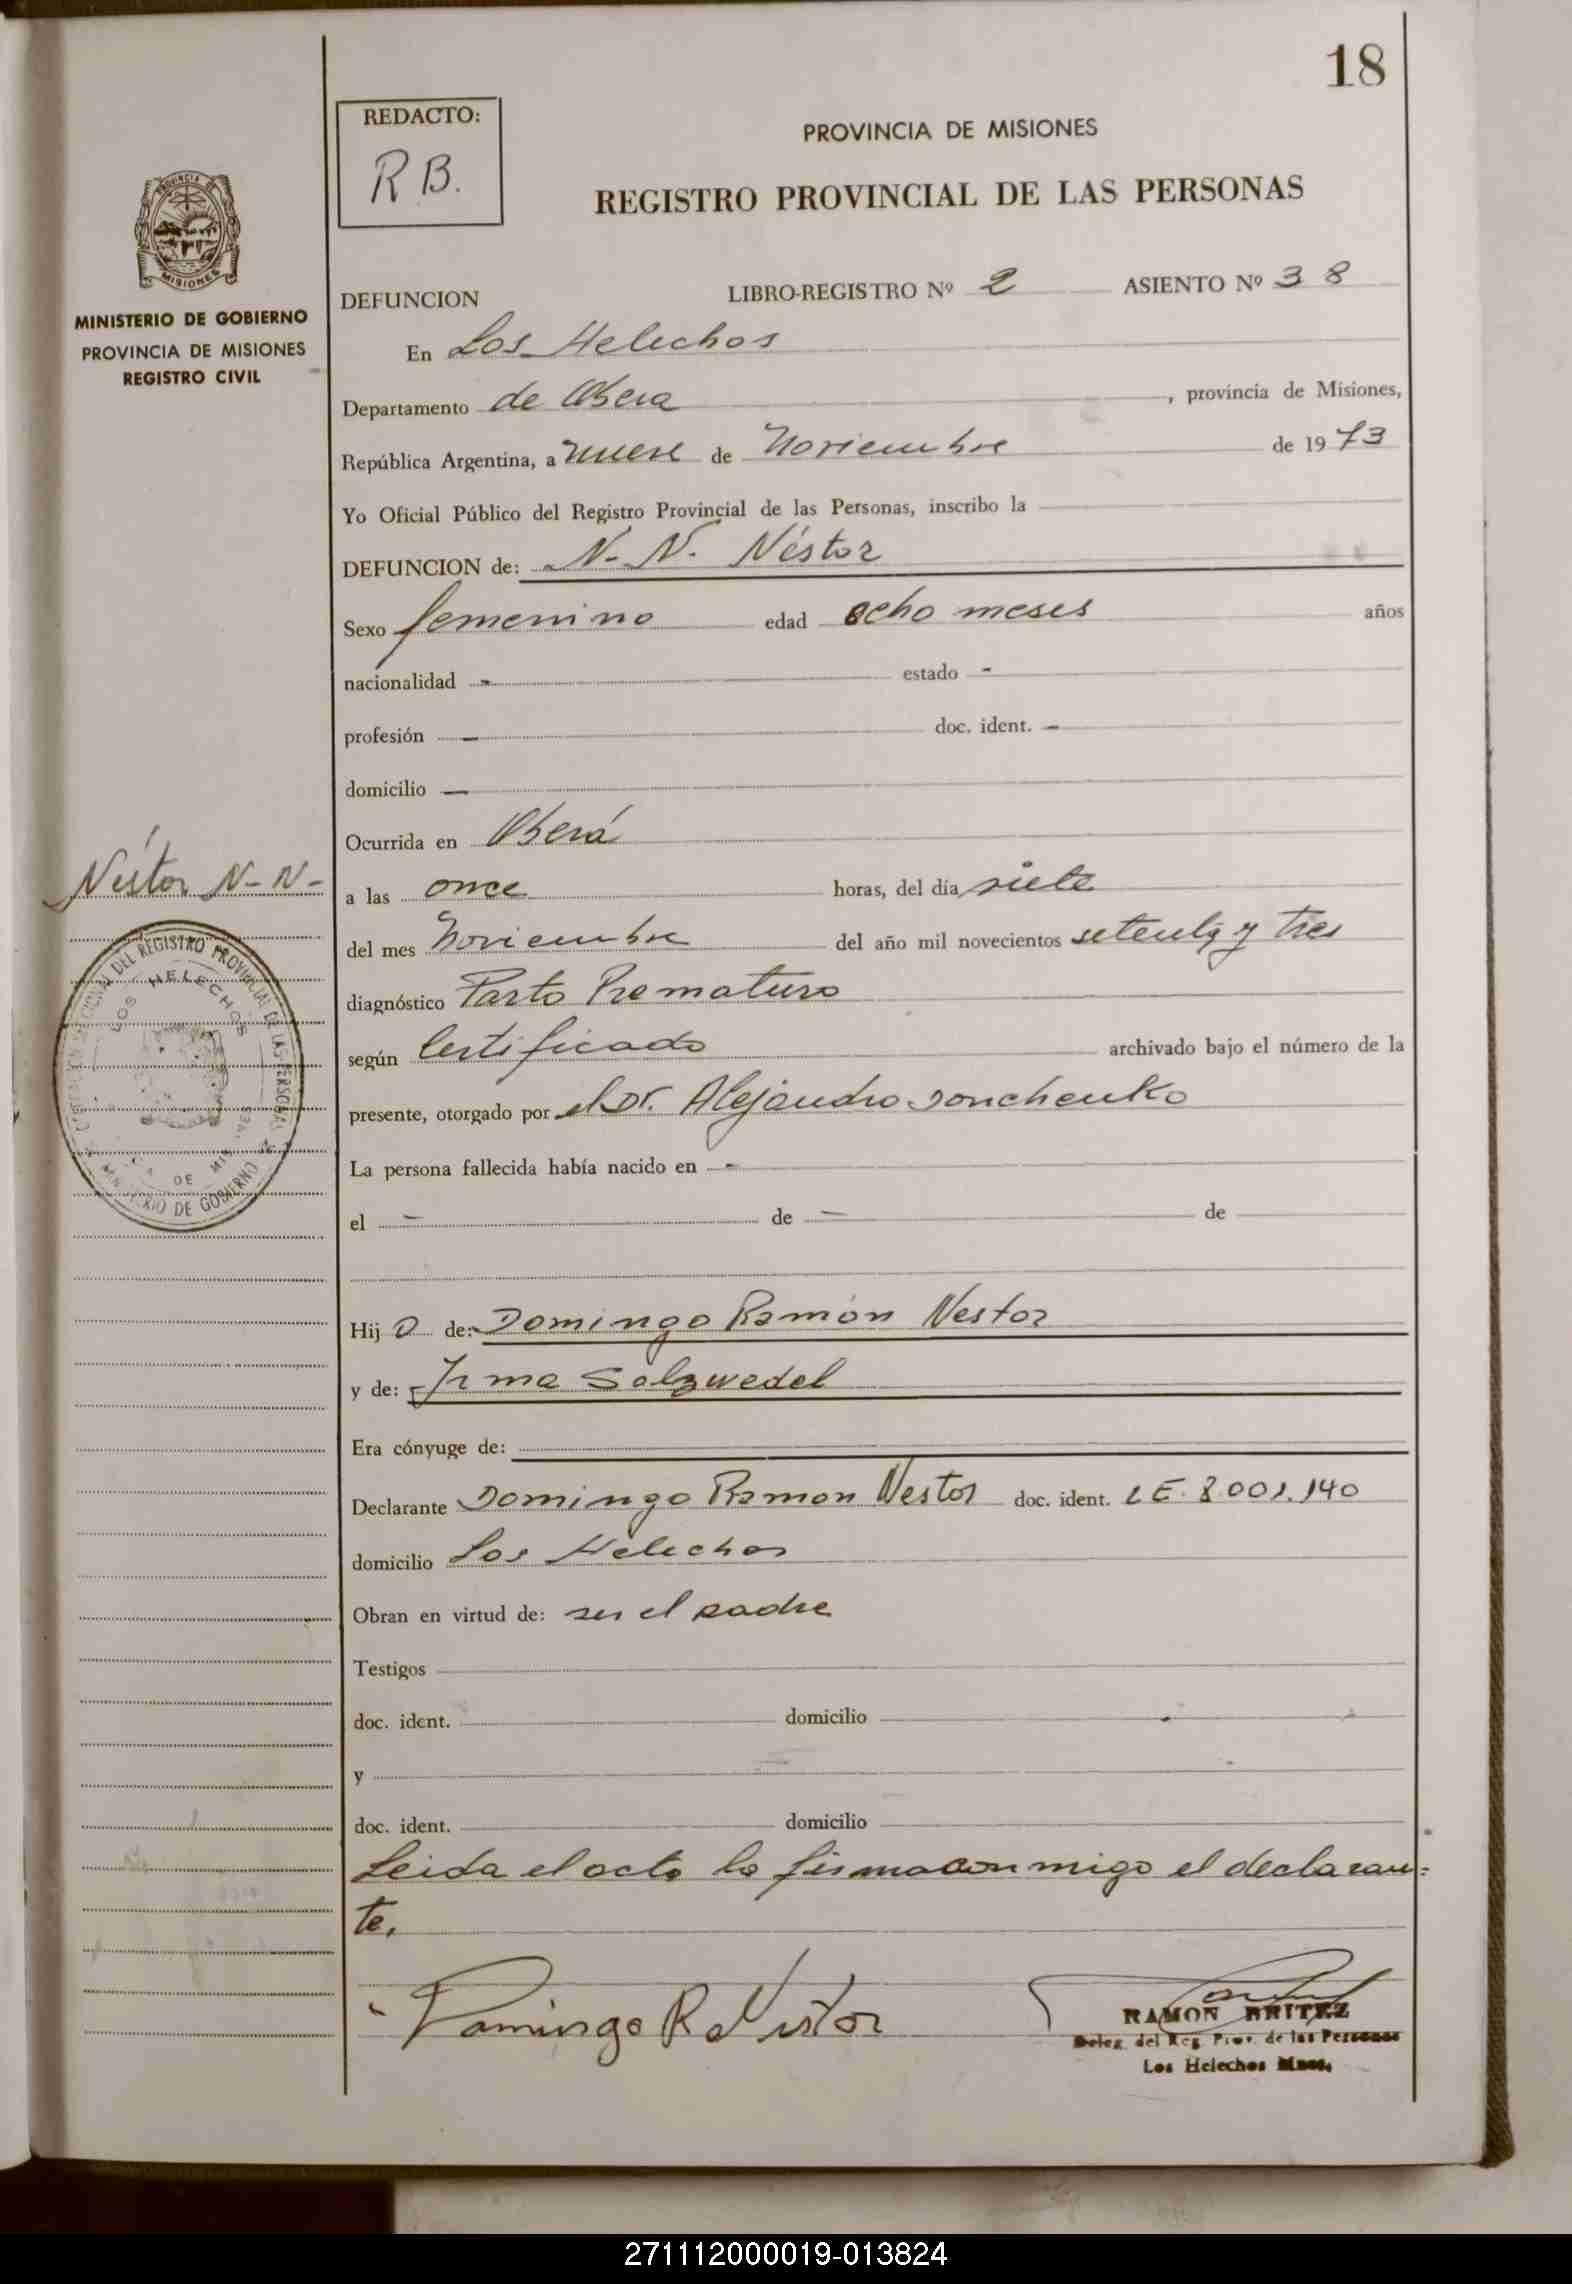 18
REDACTO:
R B.
PROVINCIA DE MISIONES
REGISTRO PROVINCIAL DE LAS PERSONAS
PROVINCIA DE
MISIONES
MINISTERIO DE GOBIERNO
PROVINCIA DE MISIONES
REGISTRO CIVIL
DEFUNCION LIBRO-REGISTRO Nº 2 ASIENTO Nº 38
En Los Helechos
Departamento de Obera, provincia de Misiones,
República Argentina, a nueve de Noviembre de 1973
Yo Oficial Público del Registro Provincial de las Personas, inscribo la
DEFUNCION de: N. N. Néstor
Sexo femenino edad ocho meses años
nacionalidad - estado -
profesión - doc. ident. -
domicilio -
Ocurrida en Oberá
Néstor N-N-
a las once horas, del día siete
del mes Noviembre del año mil novecientos setenta y tres
diagnóstico Parto Prematuro
según Certificado archivado bajo el número de la
presente, otorgado por el Dr. Alejandro Jonchenko
DEL REGISTRO PROVINCIAL DE LAS PERSONAS
LOS HELECHOS
DE MISIONES
MINISTERIO DE GOBIERNO
La persona fallecida había nacido en -
el - de - de
Hij o de: Domingo Ramón Nestor
y de: Irma Salzwedel
Era cónyuge de:
Declarante Domingo Ramon Nestor doc. ident. LE. 8.001.140
domicilio Los Helechos
Obran en virtud de: ser el padre
Testigos
doc. ident. domicilio
y
doc. ident. domicilio
Leida el acta la firma conmigo el declaran=
te.
Domingo R Nestor
RAMON BRITEZ
Deleg. del Reg. Prov. de las Personas
Los Helechos Mnes.
271112000019-013824